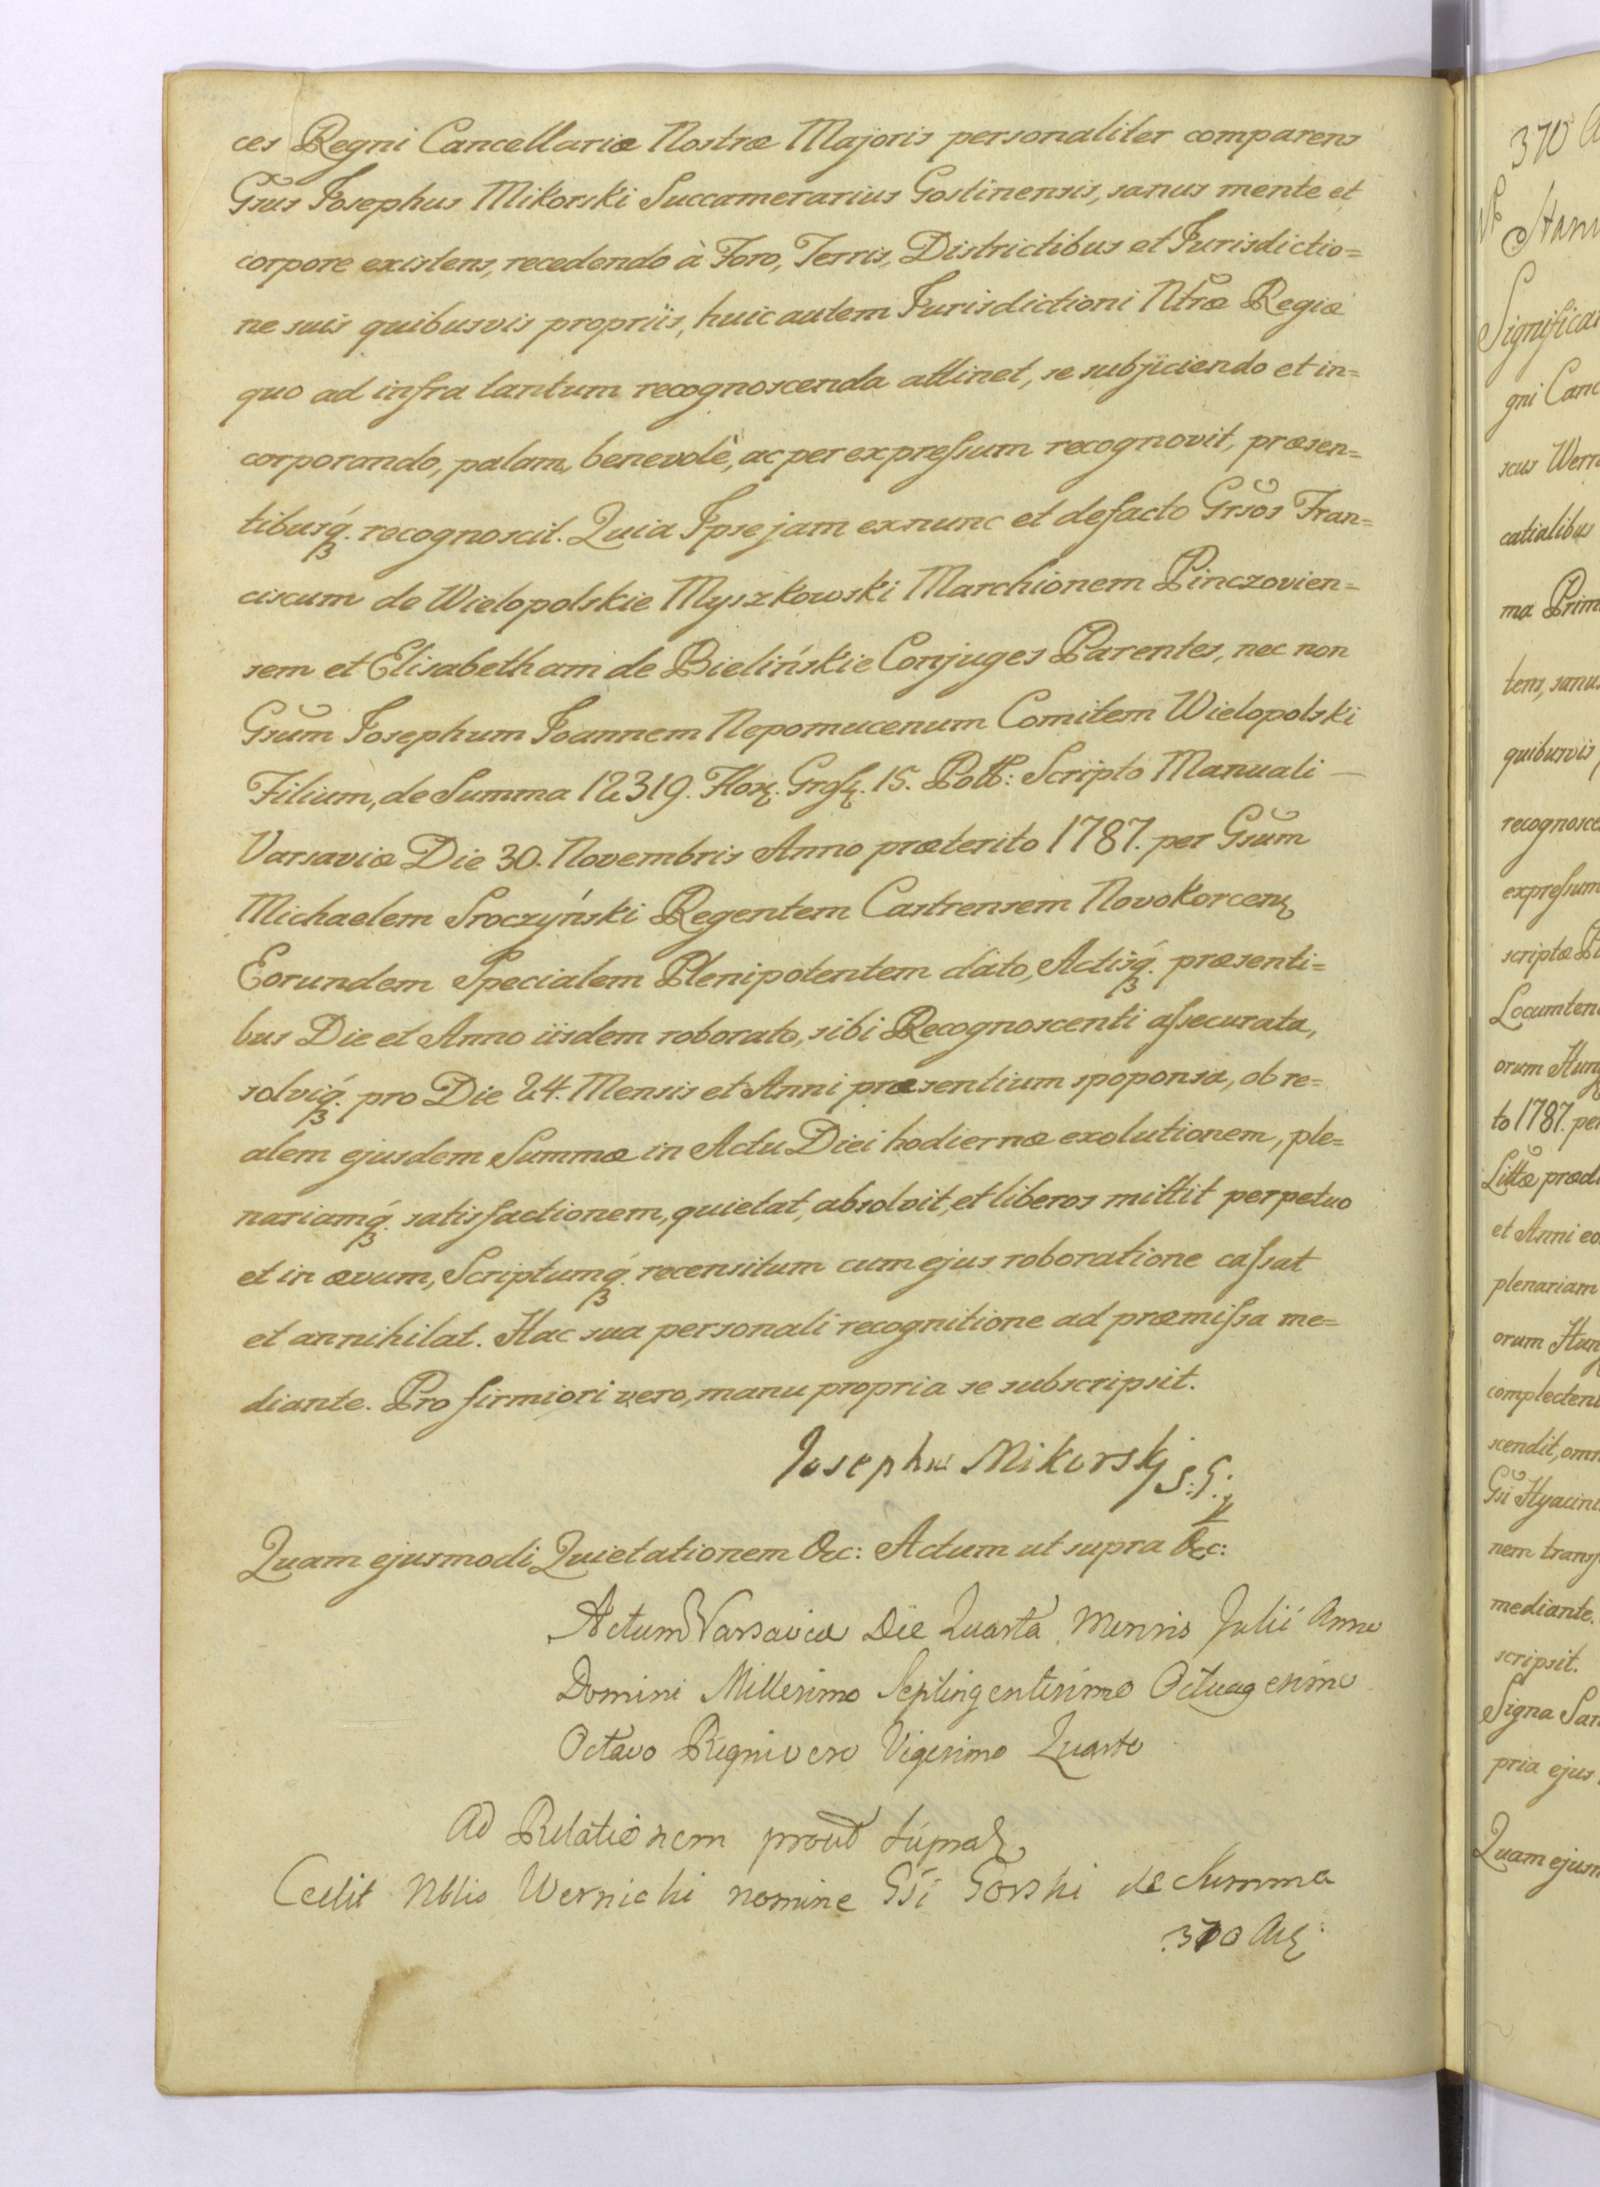 ces Regni Cancellariæ Nostræ Majoris personaliter comparens
Gsus Josephus Mikorski Succamerarius Gostinensis, sanus mente et
corpore existens, recedendo à Foro, Terris, Districtibus et Jurisdictio=
ne suis quibusvis propriis, huic autem Jurisdictioni Ntræ Regiæ
quo ad infra tantum recognoscenda attinet, se subjiciendo et in=
corporando, palam, benevolè, ac per expressum recognovit, præsen=
tibusq́. recognoscit. Quia Ipse jam ex nunc et de facto Grsos Fran=
ciscum de Wielopolskie Myszkowski Marchionem Pinczovien=
sem et Elisabetham de Bielińskie Conjuges Parentes, nec non
Gsum Josephum Joannem Nepomucenum Comitem Wielopolski
Filium, de Summa 12319. Flor. Gross. 15. Poll: Scripto Manuali —
Varsaviæ Die 30. Novembris Anno præterito 1787. per Gsum
Michaelem Sroczyński Regentem Castrensem Novokorcen
Eorundem Specialem Plenipotentem dato, Actisq́. præsenti=
bus Die et Anno iisdem roborato, sibi Recognoscenti assecurata,
solviq́. pro Die 24. Mensis et Anni præsentium spoponsa, ob re=
alem ejusdem Summæ in Actu Diei hodiernæ exolutionem, ple=
nariamq́. satisfactionem, quietat, absolvit, et liberos mittit perpetuo
et in ævum, Scriptumq́. recensitum cum ejus roboratione cassat
et annihilat. Hac sua personali recognitione ad præmissa me=
diante. Pro firmiori vero, manu propria se subscripsit.
Josephus Mikorski S: G:
Quam ejusmodi Quietationem &c: Actum ut supra &c:
Actum Varsaviæ Die Quarta Mensis Julii Anno
Domini Millesimo Septingentesimo Octuagesimo
Octavo Regni vero Vigesimo Quarto
Ad Relationem prout supra
Cedit Nblis Wernicki nomine Gsi Gorski de Summa
370 Aur:
370 A
Stani
Significa
gni Canc
scus Wern
catialibus
ma Prim
tens, sanus
quibusvis
recognosce
expressum
scriptæ
Locumten
orum Hung
to 1787. per
Littæ præd
et Anni eo
plenariam
orum Hun
complecten
scendit, omn
Gsi Hyacin
nem trans
mediante.
scripsit.
Signa San
pria ejus
Quam ejusm